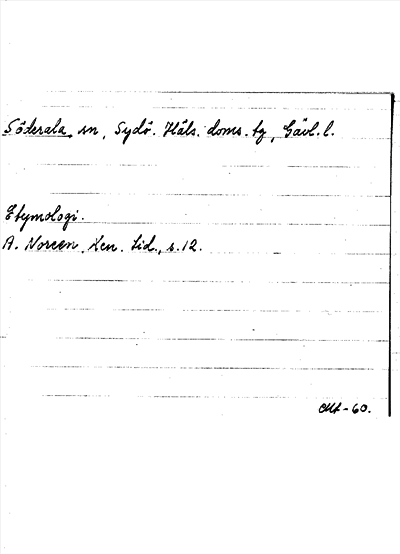 Söderala, sn, Sydö. Häls. doms. tg, Gävl. l.
Etymologi.
A. Noreen, Xen. Lid., s. 12.
-60.